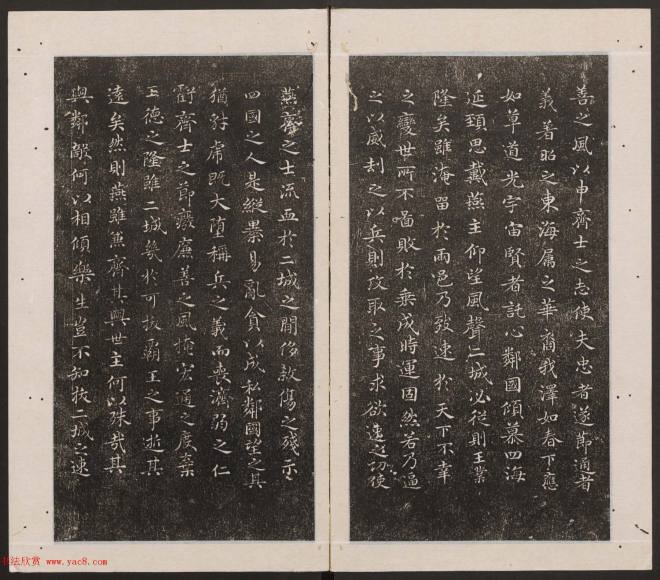 善之風以申齊士之志使夫忠者遂節通者
義著昭之東海屬之華裔我澤如春下應
如草道光宇宙賢者託心鄰國傾慕四海
延頸思戴燕主仰望風聲二城必從則王業
隆矣雖淹留於兩邑乃致速於天下不幸
之變世所不圖敗於垂成時運固然若乃逼
之以威劫之以兵則攻取之事求欲速之功使
燕齊之士流血於二城之間侈殺傷之殘示
四國之人是縱暴易亂貪以成私鄰國望之其
猶豺虎既大墮稱兵之義而喪濟弱之仁
虧齊士之節廢廉善之風掩宏通之度棄
王德之隆雖二城幾於可拔霸王之事逝其
遠矣然則燕雖兼齊其與世主何以殊哉其
與鄰敵何以相傾樂生豈不知拔二城之速
书法欣赏 www.yac8.com